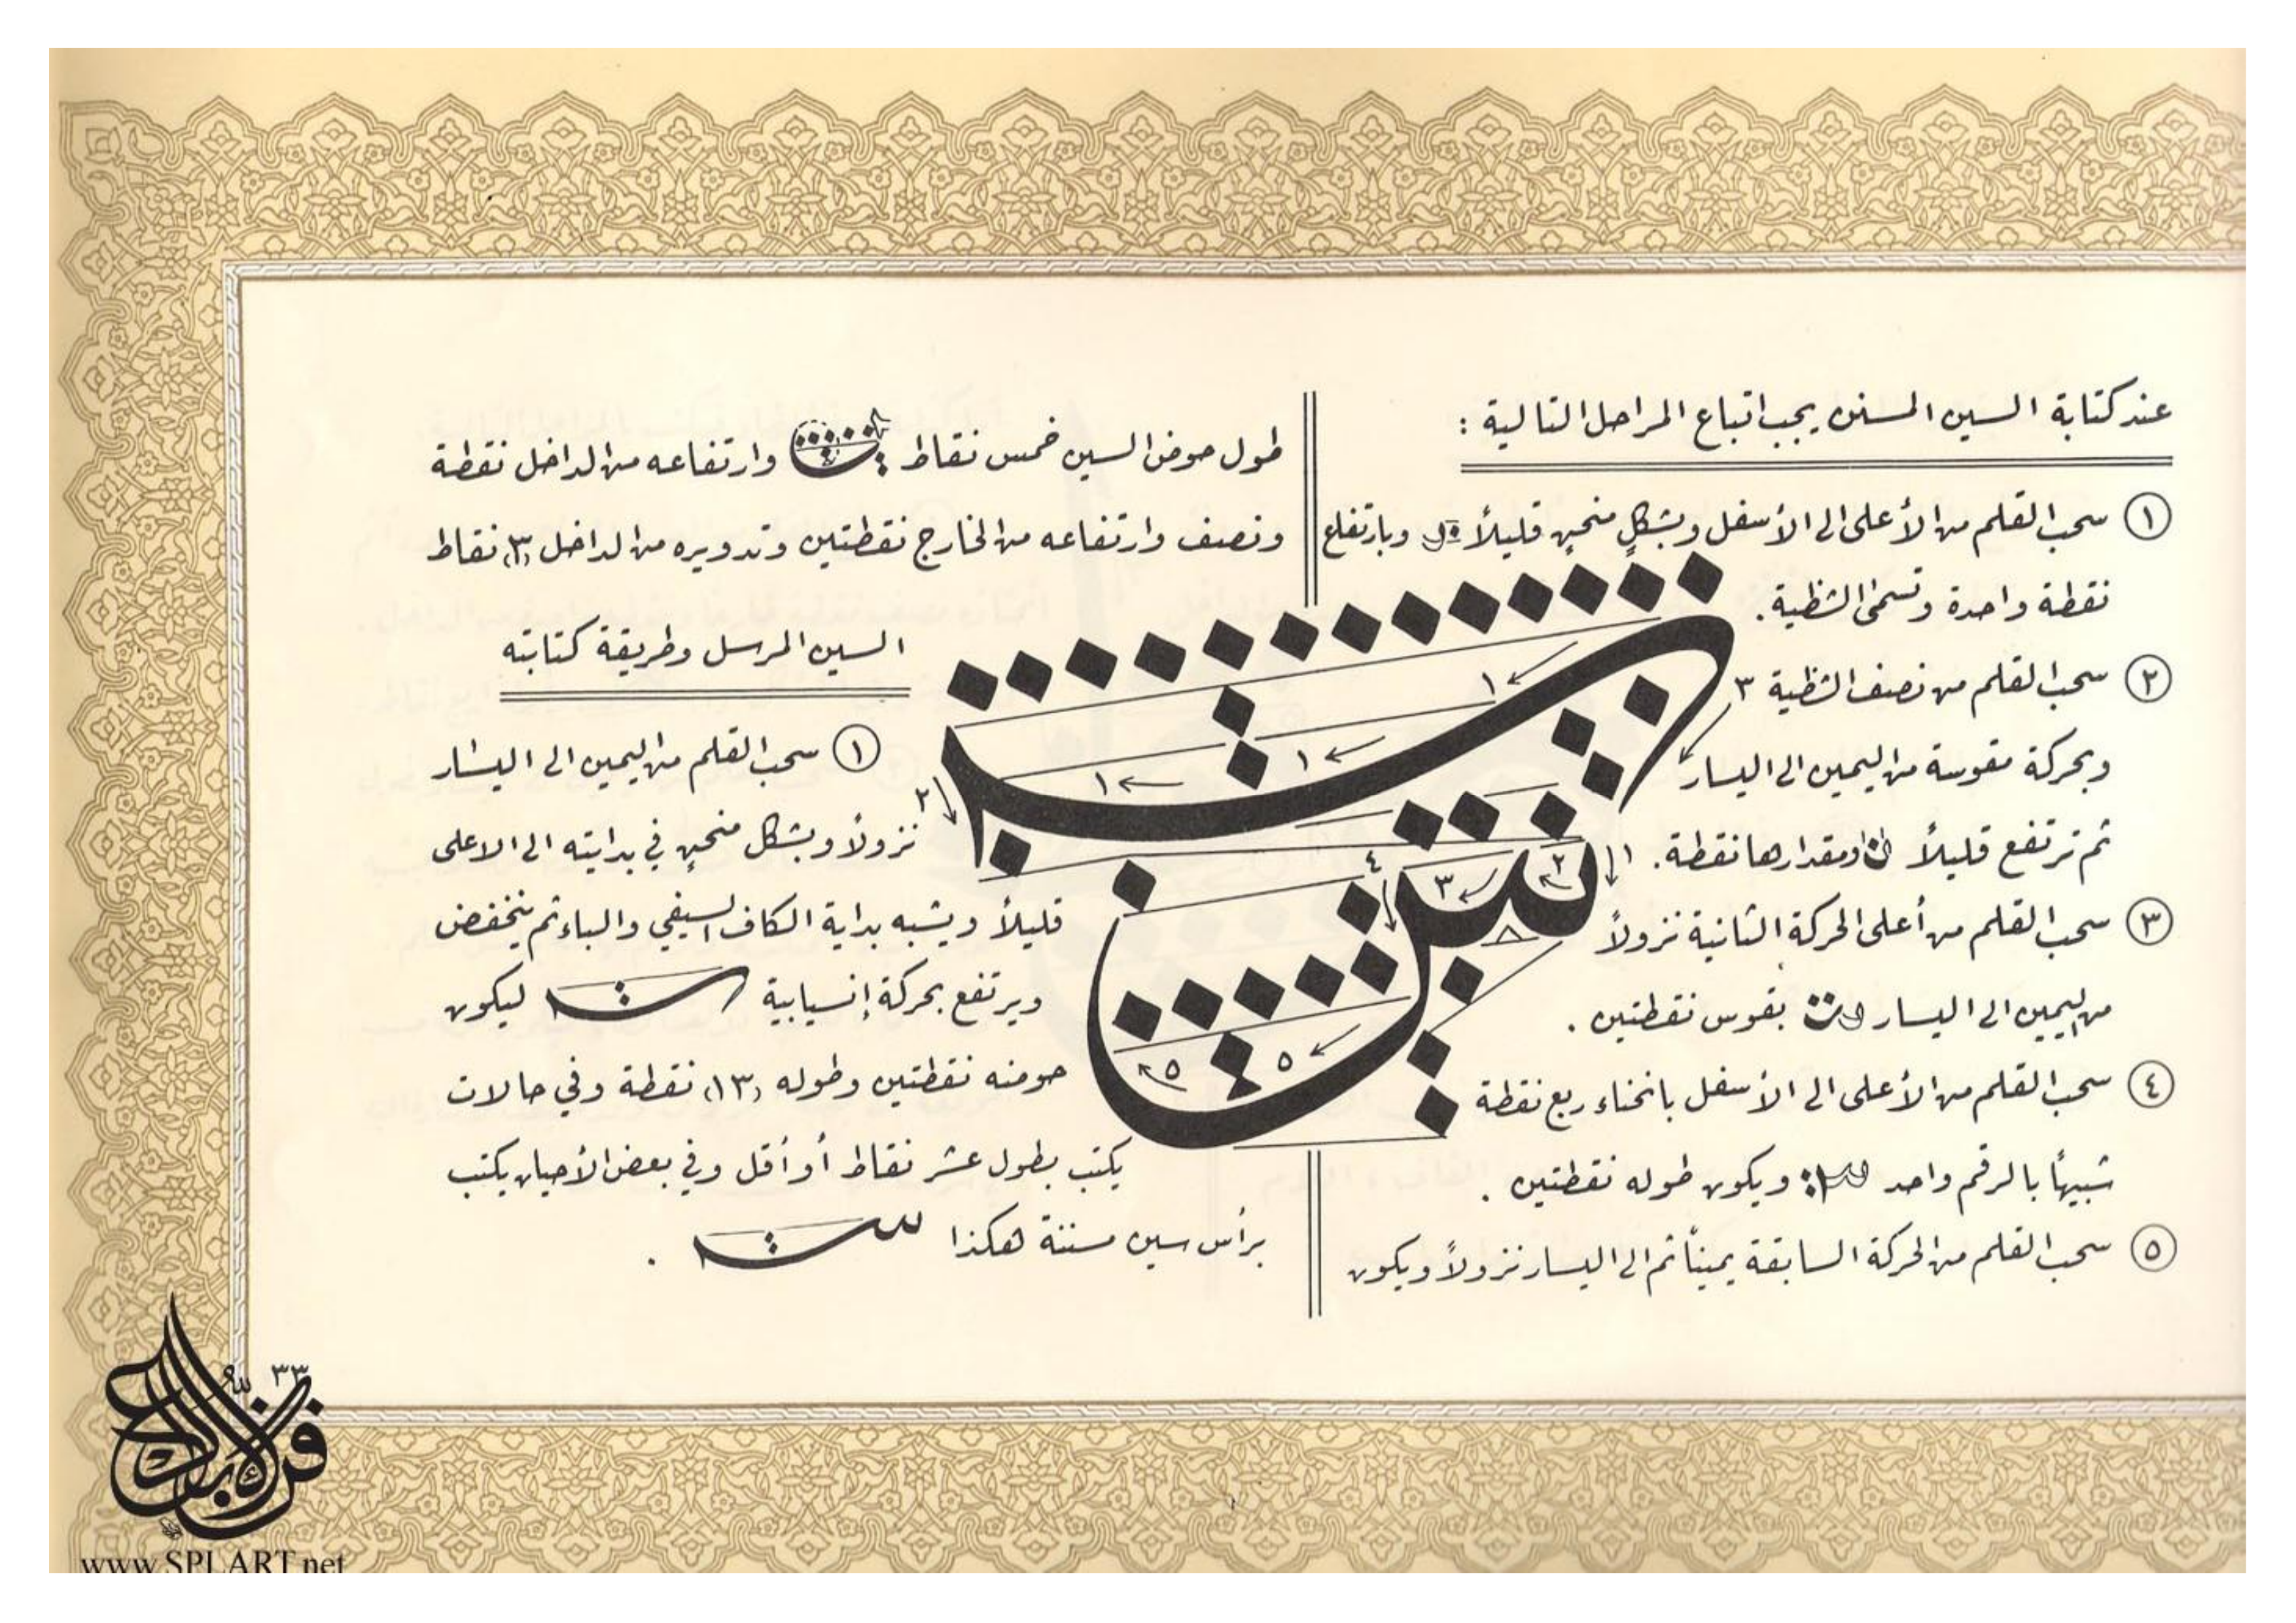 عند كتابة السين المسنن يجب اتباع المراحل التالية :
١ سحب القلم من الأعلى الى الأسفل وبشكلٍ منحنٍ قليلاً وبارتفاع
نقطة واحدة وتسمى الشظية .
٢ سحب القلم من نصف الشظية
وبحركة مقوسة من اليمين الى اليسار
ثم ترتفع قليلاً ومقدارها نقطة .
٣ سحب القلم من أعلى الحركة الثانية نزولاً
من اليمين الى اليسار بقوس نقطتين .
٤ سحب القلم من الأعلى الى الأسفل بانحناء ربع نقطة
شبيهاً بالرقم واحد ويكون طوله نقطتين .
٥ سحب القلم من الحركة السابقة يميناً ثم الى اليسار نزولاً ويكون
طول حوض السين خمس نقاط وارتفاعه من الداخل نقطة
ونصف وارتفاعه من الخارج نقطتين وتدويره من الداخل (٣) نقاط
السين المرسل وطريقة كتابته
١ سحب القلم من اليمين الى اليسار
نزولاً وبشكل منحنٍ في بدايته الى الاعلى
قليلاً ويشبه بداية الكاف السيفي والباء ثم ينخفض
ويرتفع بحركة إنسيابية ليكون
حوضه نقطتين وطوله (١٣) نقطة وفي حالات
يكتب بطول عشر نقاط أو أقل وفي بعض الأحيان يكتب
برأس سين مسننة هكذا .
٣٣
www.SPLART.net